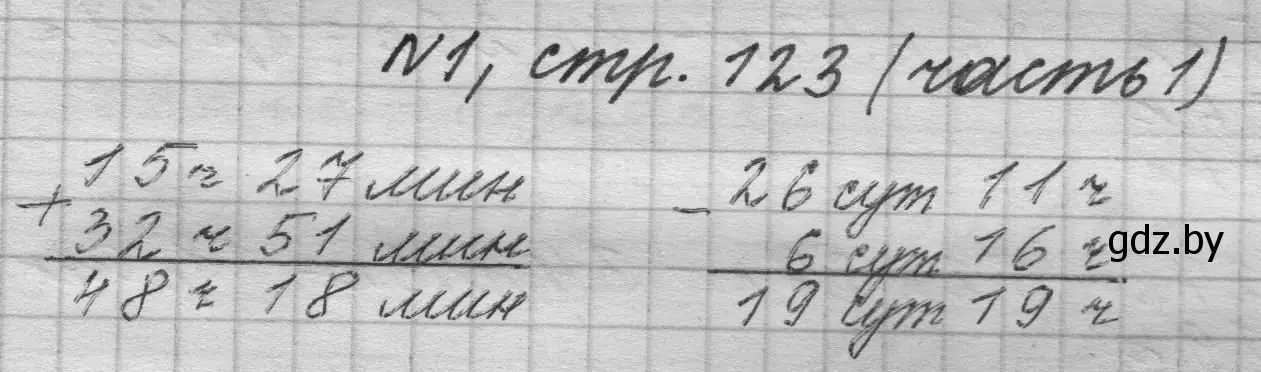 N1, стр. 123 (часть 1)
+ 15 ч 27 мин
32 ч 51 мин
48 ч 18 мин
- 26 сут 11 ч
6 сут 16 ч
19 сут 19 ч
gdz.by